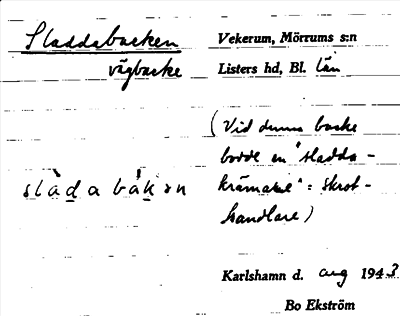 Sladdabacken
vägbacke
sladabakən
Vekerum, Mörrums s:n
Listers hd, Bl. län
(Vid denna backe
bodde en "sladda-
krämare": skrot-
handlare)
Karlshamn d. aug 1943
Bo Ekström